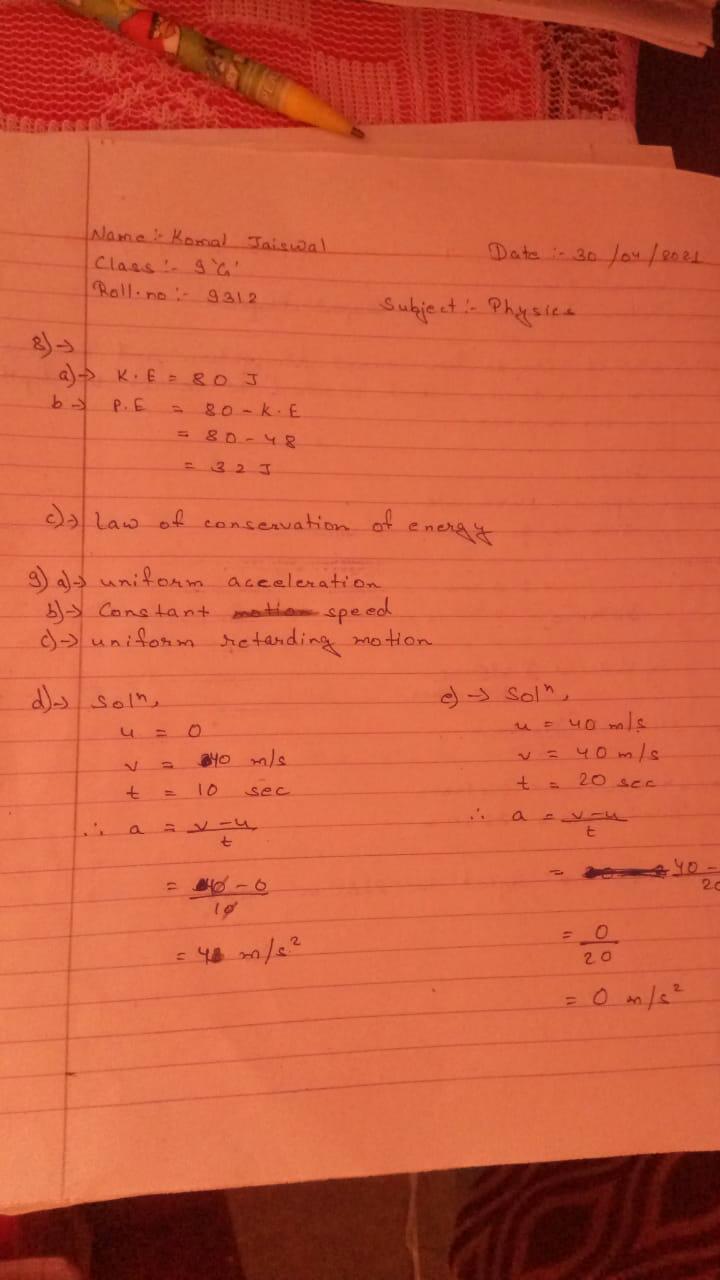 Name :- Komal Jaiswal
Date :- 30/04/2021
Class :- 9 'G'
Roll.no :- 9312
Subject :- Physics
8) →
a) → K.E = 80 J
b → P.E = 80 - K.E
= 80 - 48
= 32 J
c) → Law of conservation of energy
9) a) → uniform acceleration
b) → Constant speed
c) → uniform retarding motion
d) → Solⁿ,
u = 0
v = 40 m/s
t = 10 sec
∴ a = v-u/t
= 40-0/10
= 4 m/s²
e) → Solⁿ,
u = 40 m/s
v = 40 m/s
t = 20 sec
∴ a = v-u/t
= 40-/20
= 0/20
= 0 m/s²